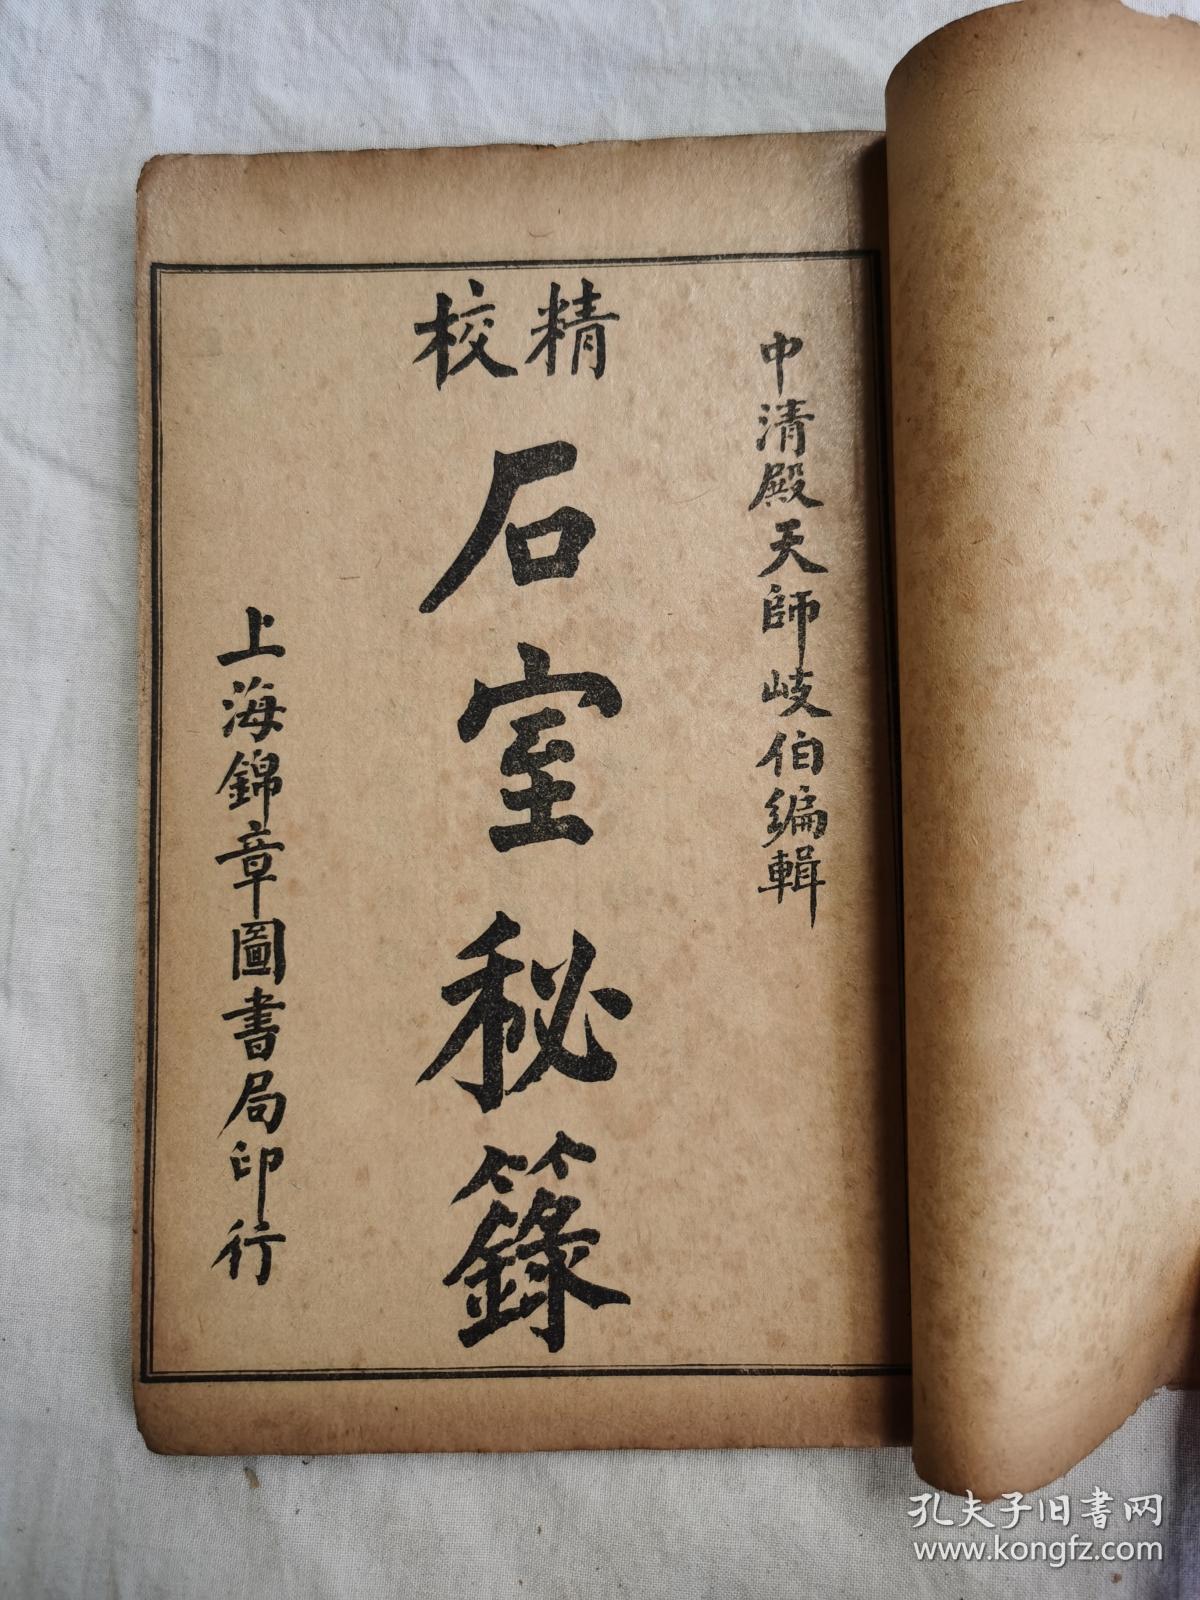 中清殿天師岐伯編輯
精校
石室秘籙
上海錦章圖書局印行
孔夫子旧书网
www.kongfz.com